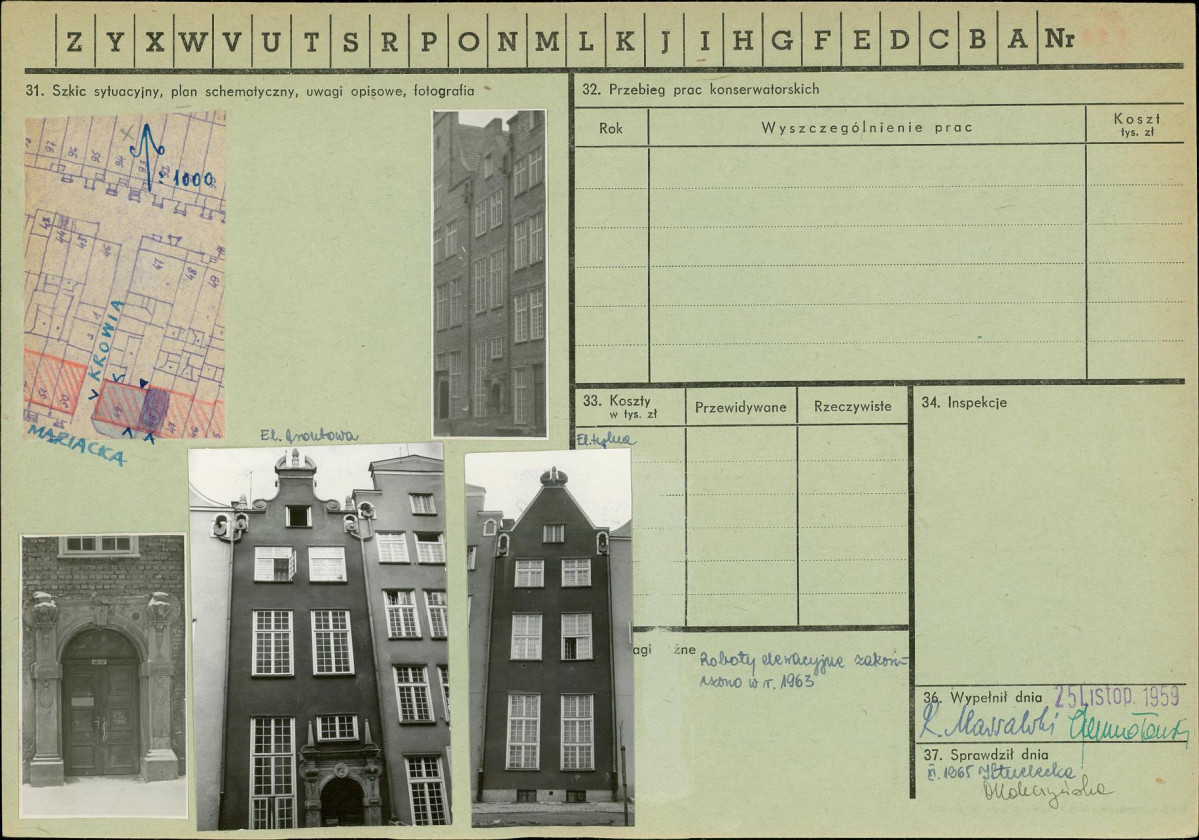 Z Y X W V U T S R P O N M L K J I H G F E D C B A Nr
31. Szkic sytuacyjny, plan schematyczny, uwagi opisowe, fotografia
97 96 95 94 93
1:1000
43 44 45 46 47 48 49
KROWIA
51 50 49
MARIACKA
El. frontowa
El. tylna
32. Przebieg prac konserwatorskich
Rok
Wyszczególnienie prac
Koszt
tys. zł
33. Koszty
w tys. zł
Przewidywane
Rzeczywiste
34. Inspekcje
Roboty elewacyjne zakoń-
czono w r. 1963
36. Wypełnił dnia 25 Listop. 1959
37. Sprawdził dnia
XI. 1965